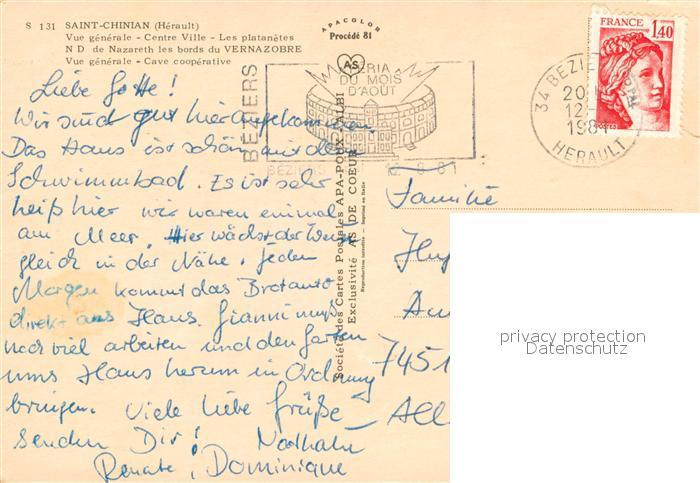 S 131 SAINT-CHINIAN (Hérault)
Vue générale - Centre Ville - Les platanètes
N D de Nazareth les bords du VERNAZOBRE
Vue générale - Cave coopérative
APACOLOR
Procédé 81
AS
BÉZIERS
FERIA
DU MOIS
D'AOUT
BÉZIERS
8 81
34 BEZIE
20
12
1981
HERAULT
FRANCE
1,40
POSTES
Liebe Gotte!
Wir sind gut hier angekommen.
Das Haus ist schön mit dem
Schwimmbad. Es ist sehr
heiß hier wir waren einmal
am Meer. Hier wächst der Wein
gleich in der Nähe. Jeden
Morgen kommt das Brotauto
direkt ans Haus. Gianni muß
noch viel arbeiten und den Garten
ums Haus herum in Ordnung
bringen. Viele liebe Grüße
senden Dir! Nathalie
Renate, Dominique
Société des Cartes Postales APA-POUX - ALBI
Exclusivité AS DE COEUR
Reproduction interdite - Imprimé en Italie
Familie
7451
All
privacy protection
Datenschutz